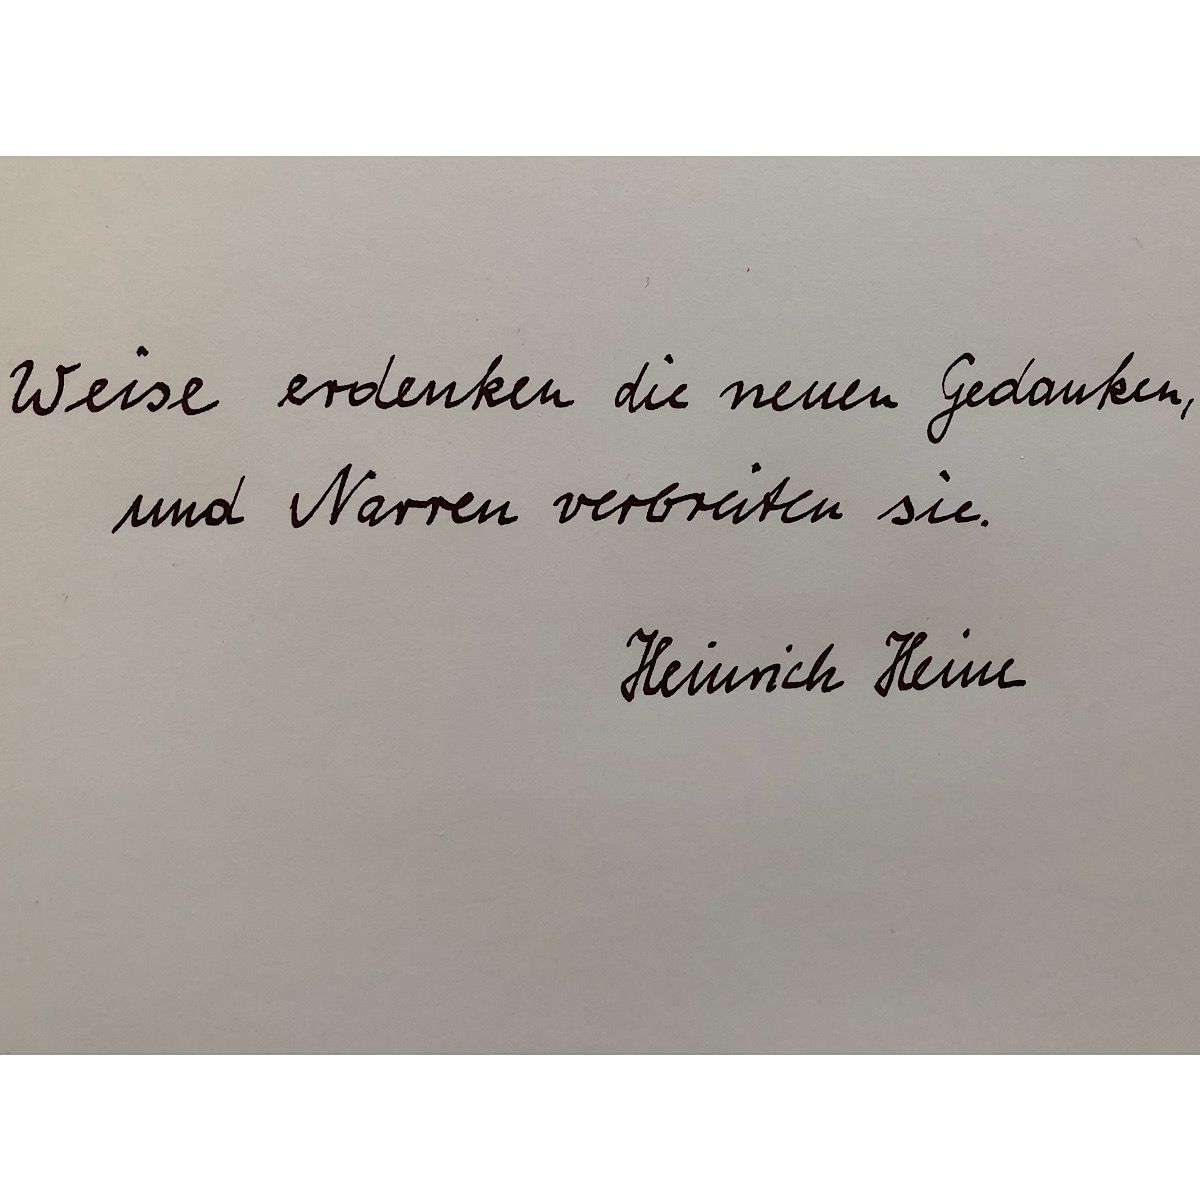 Weise erdenken die neuen Gedanken,
und Narren verbreiten sie.
Heinrich Heine